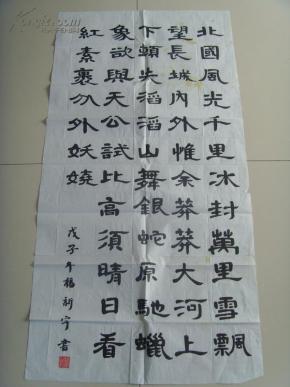 北國風光千里冰封萬里雪飄
望長城內外惟余莽莽大河上
下頓失滔滔山舞銀蛇原馳蠟
象欲與天公試比高須晴日看
紅素裹分外妖嬈
戊子年楊新宇書